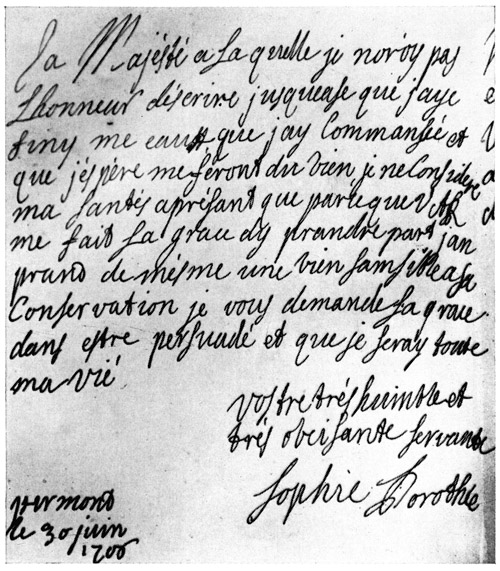 Sa Majésté a Laquelle je noroy pas
Lhonneur déscrire jusquease que jaye
finy me eaux que jay Commansée et
que jéspère me feront du bien je ne Considere
ma santés apresant que parce que V. A.
me fait La grace dy prandre part jan
prand de mésme une bien sansible a sa
Conservation je vous demande La grace
dans estre persuadé et que je seray toute
ma vié
vostre trés humble et
trés obeisante servante
Sophie Dorothée
pirmont
le 30 juin
1706